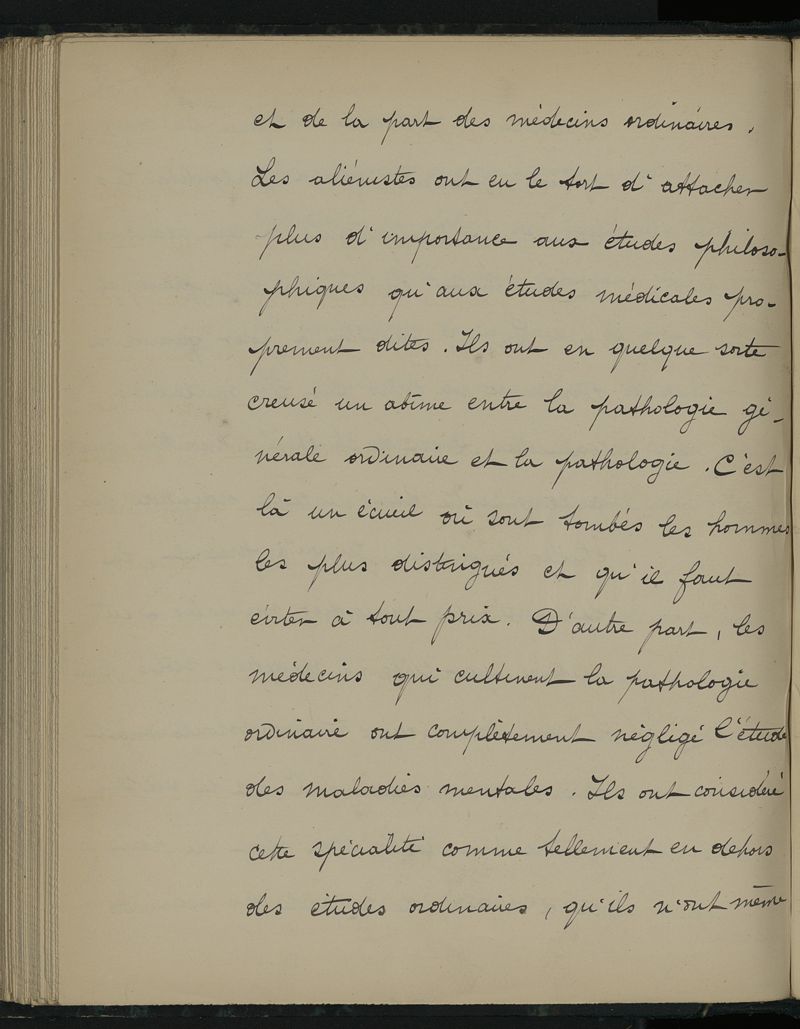 et de la part des médecins ordinaires.
Les aliénistes ont eu le tort d'attacher
plus d'importance aux études philoso-
phiques qu'aux études médicales pro-
prement dites. Ils ont en quelque sorte
creusé un abîme entre la pathologie gé-
nérale ordinaire et la pathologie. C'est
là un écueil où sont tombés les hommes
les plus distingués et qu'il faut
éviter à tout prix. D'autre part, les
médecins qui cultivent la pathologie
ordinaire ont complètement négligé l'étude
des maladies mentales. Ils ont considéré
cette spécialité comme tellement en dehors
des études ordinaires, qu'ils n'ont même